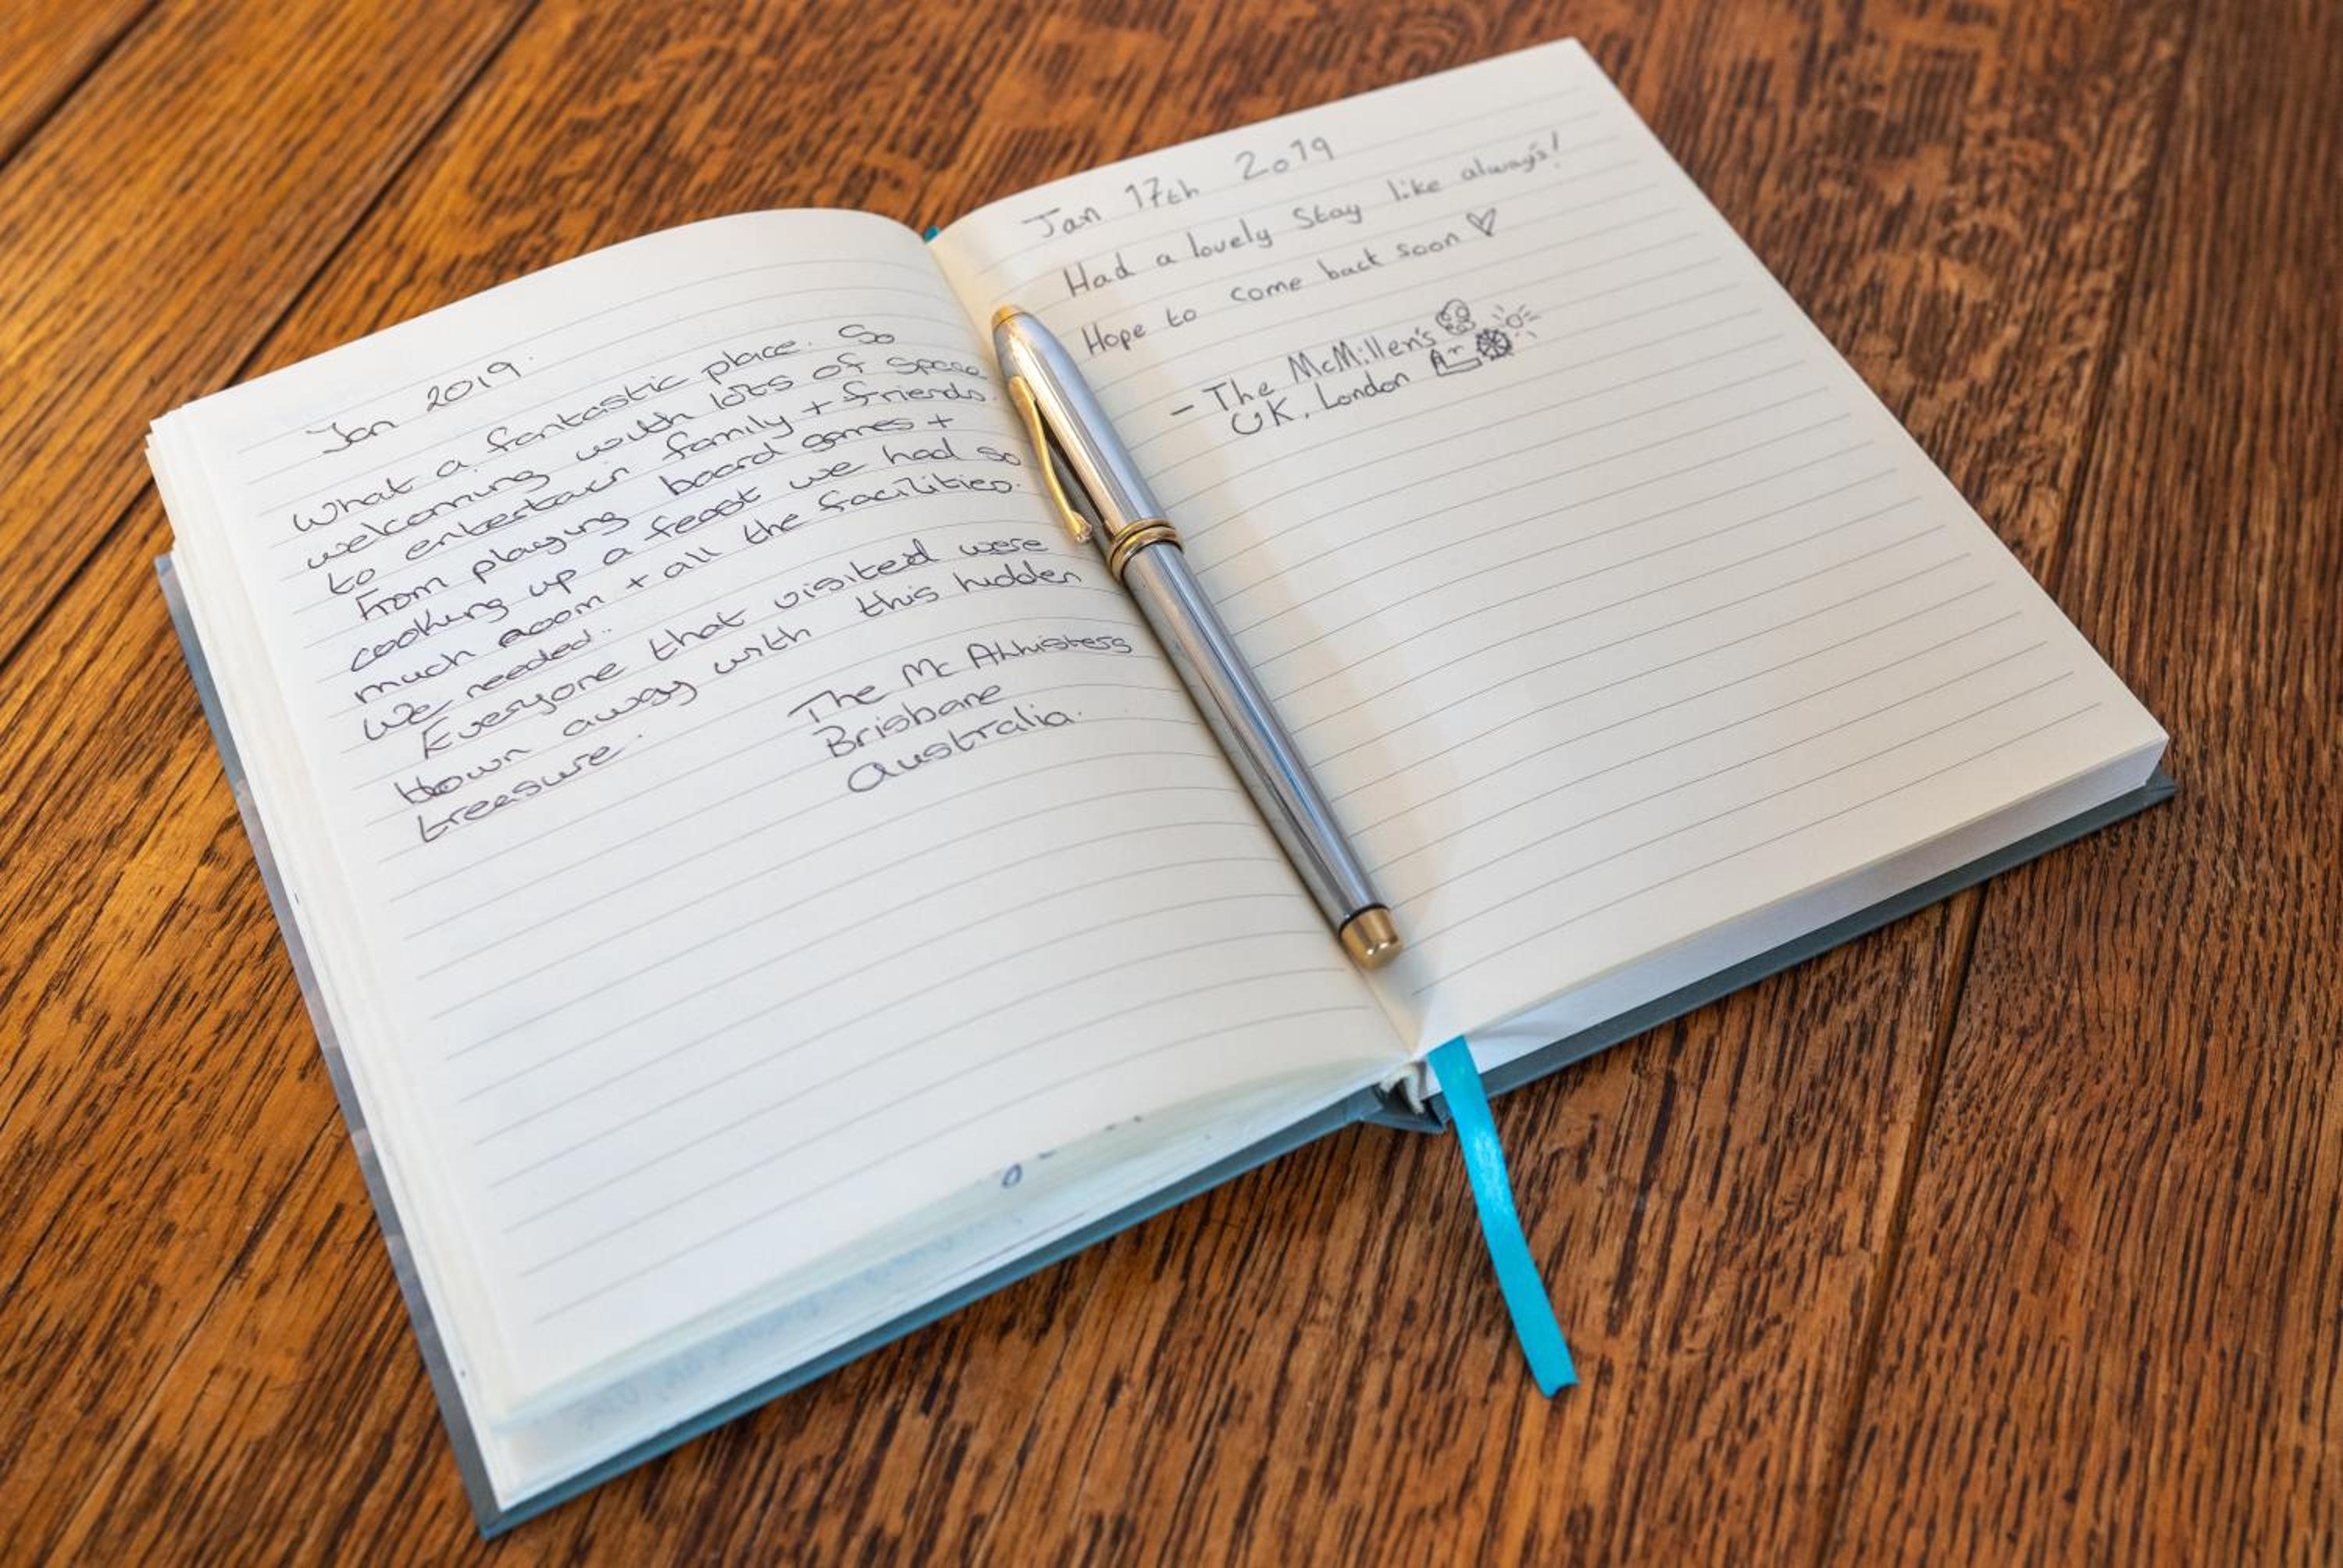 Jan 2019.
What a fantastic place. So
welcoming with lots of space
to entertain family + friends.
From playing board games +
cooking up a feast we had so
much room + all the facilities.
We needed.
Everyone that visited were
blown away with this hidden
treasure.
The Mc Allisters
Brisbane
Australia.
Jan 17th 2019
Had a lovely Stay like always!
Hope to come back soon ♡
- The McMillen's
UK, London